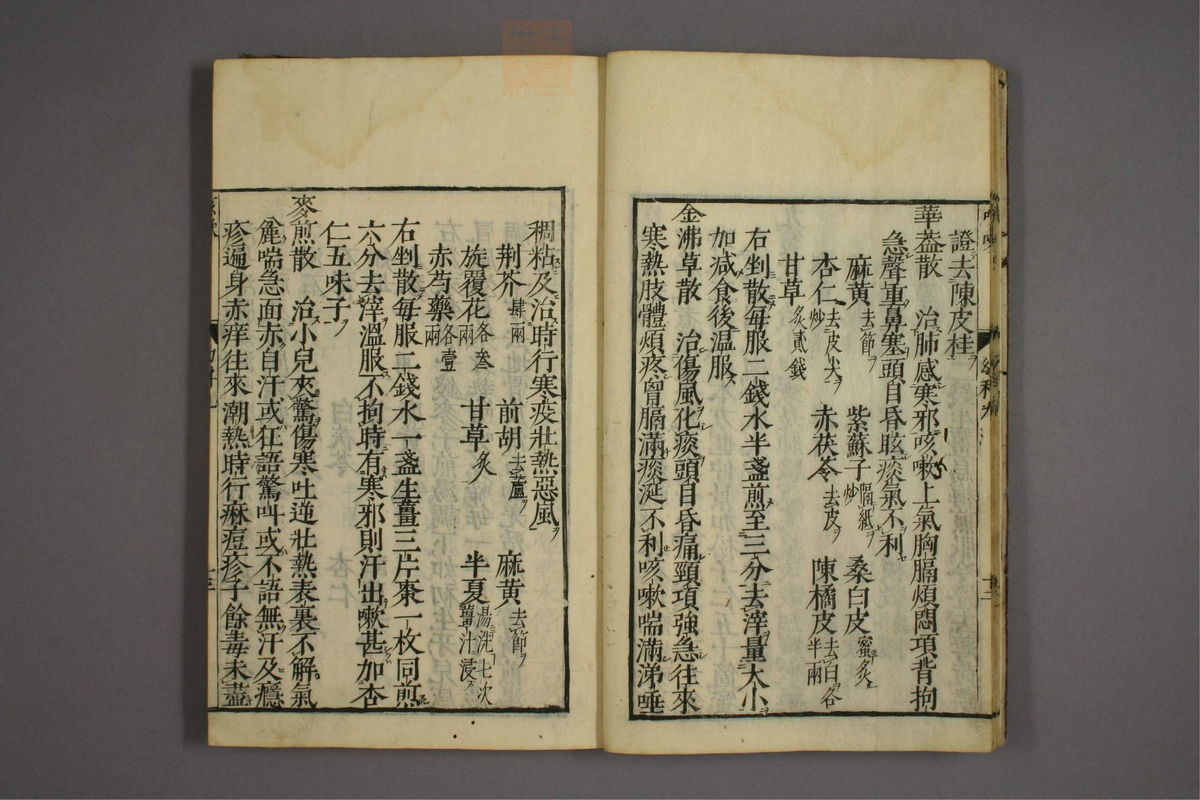 證去陳皮桂
華蓋散　治肺感寒邪咳嗽上氣胸膈煩悶項背拘
急聲重鼻塞頭目昏眩痰氣不利
麻黃去節　紫蘇子隔紙炒　桑白皮蜜炙
杏仁去皮尖炒　赤茯苓去皮　陳橘皮去白各半兩
甘草炙貳錢
右剉散每服二錢水半盞煎至三分去滓量大小
加減食後温服
金沸草散　治傷風化痰頭目昏痛頸項強急往來
寒熱肢體煩疼胷膈滿痰涎不利咳嗽喘滿涕唾
稠粘及治時行寒疫壯熱惡風
荊芥肆兩　前胡去蘆　麻黃去節
旋覆花各叁兩　甘草炙　半夏湯洗七次薑汁浸
赤芍藥各壹兩
右剉散每服二錢水一盞生薑三片棗一枚同煎
六分去滓溫服不拘時有寒邪則汗出嗽甚加杏
仁五味子
麥煎散　治小兒夾驚傷寒吐逆壯熱表裏不解氣
麄喘急面赤自汗或狂語驚叫或不語無汗及癮
疹遍身赤痒往來潮熱時行麻痘疹子餘毒未盡